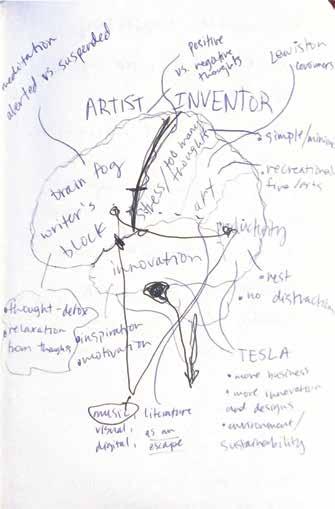 meditation
alerted vs. suspended
positive
vs. negative
thoughts
Lewiston
consumers
ARTIST INVENTOR
brain fog
writer's
block
stress/too many
thoughts
art
productivity
innovation
• simple/
• recreational
• rest
• no distraction
• thought-detox
• relaxation
from thoughts
• inspiration
• motivation
TESLA
• more business
• more innovation
and designs
• environment/
sustainability
music, literature
visual, as an
digital, escape